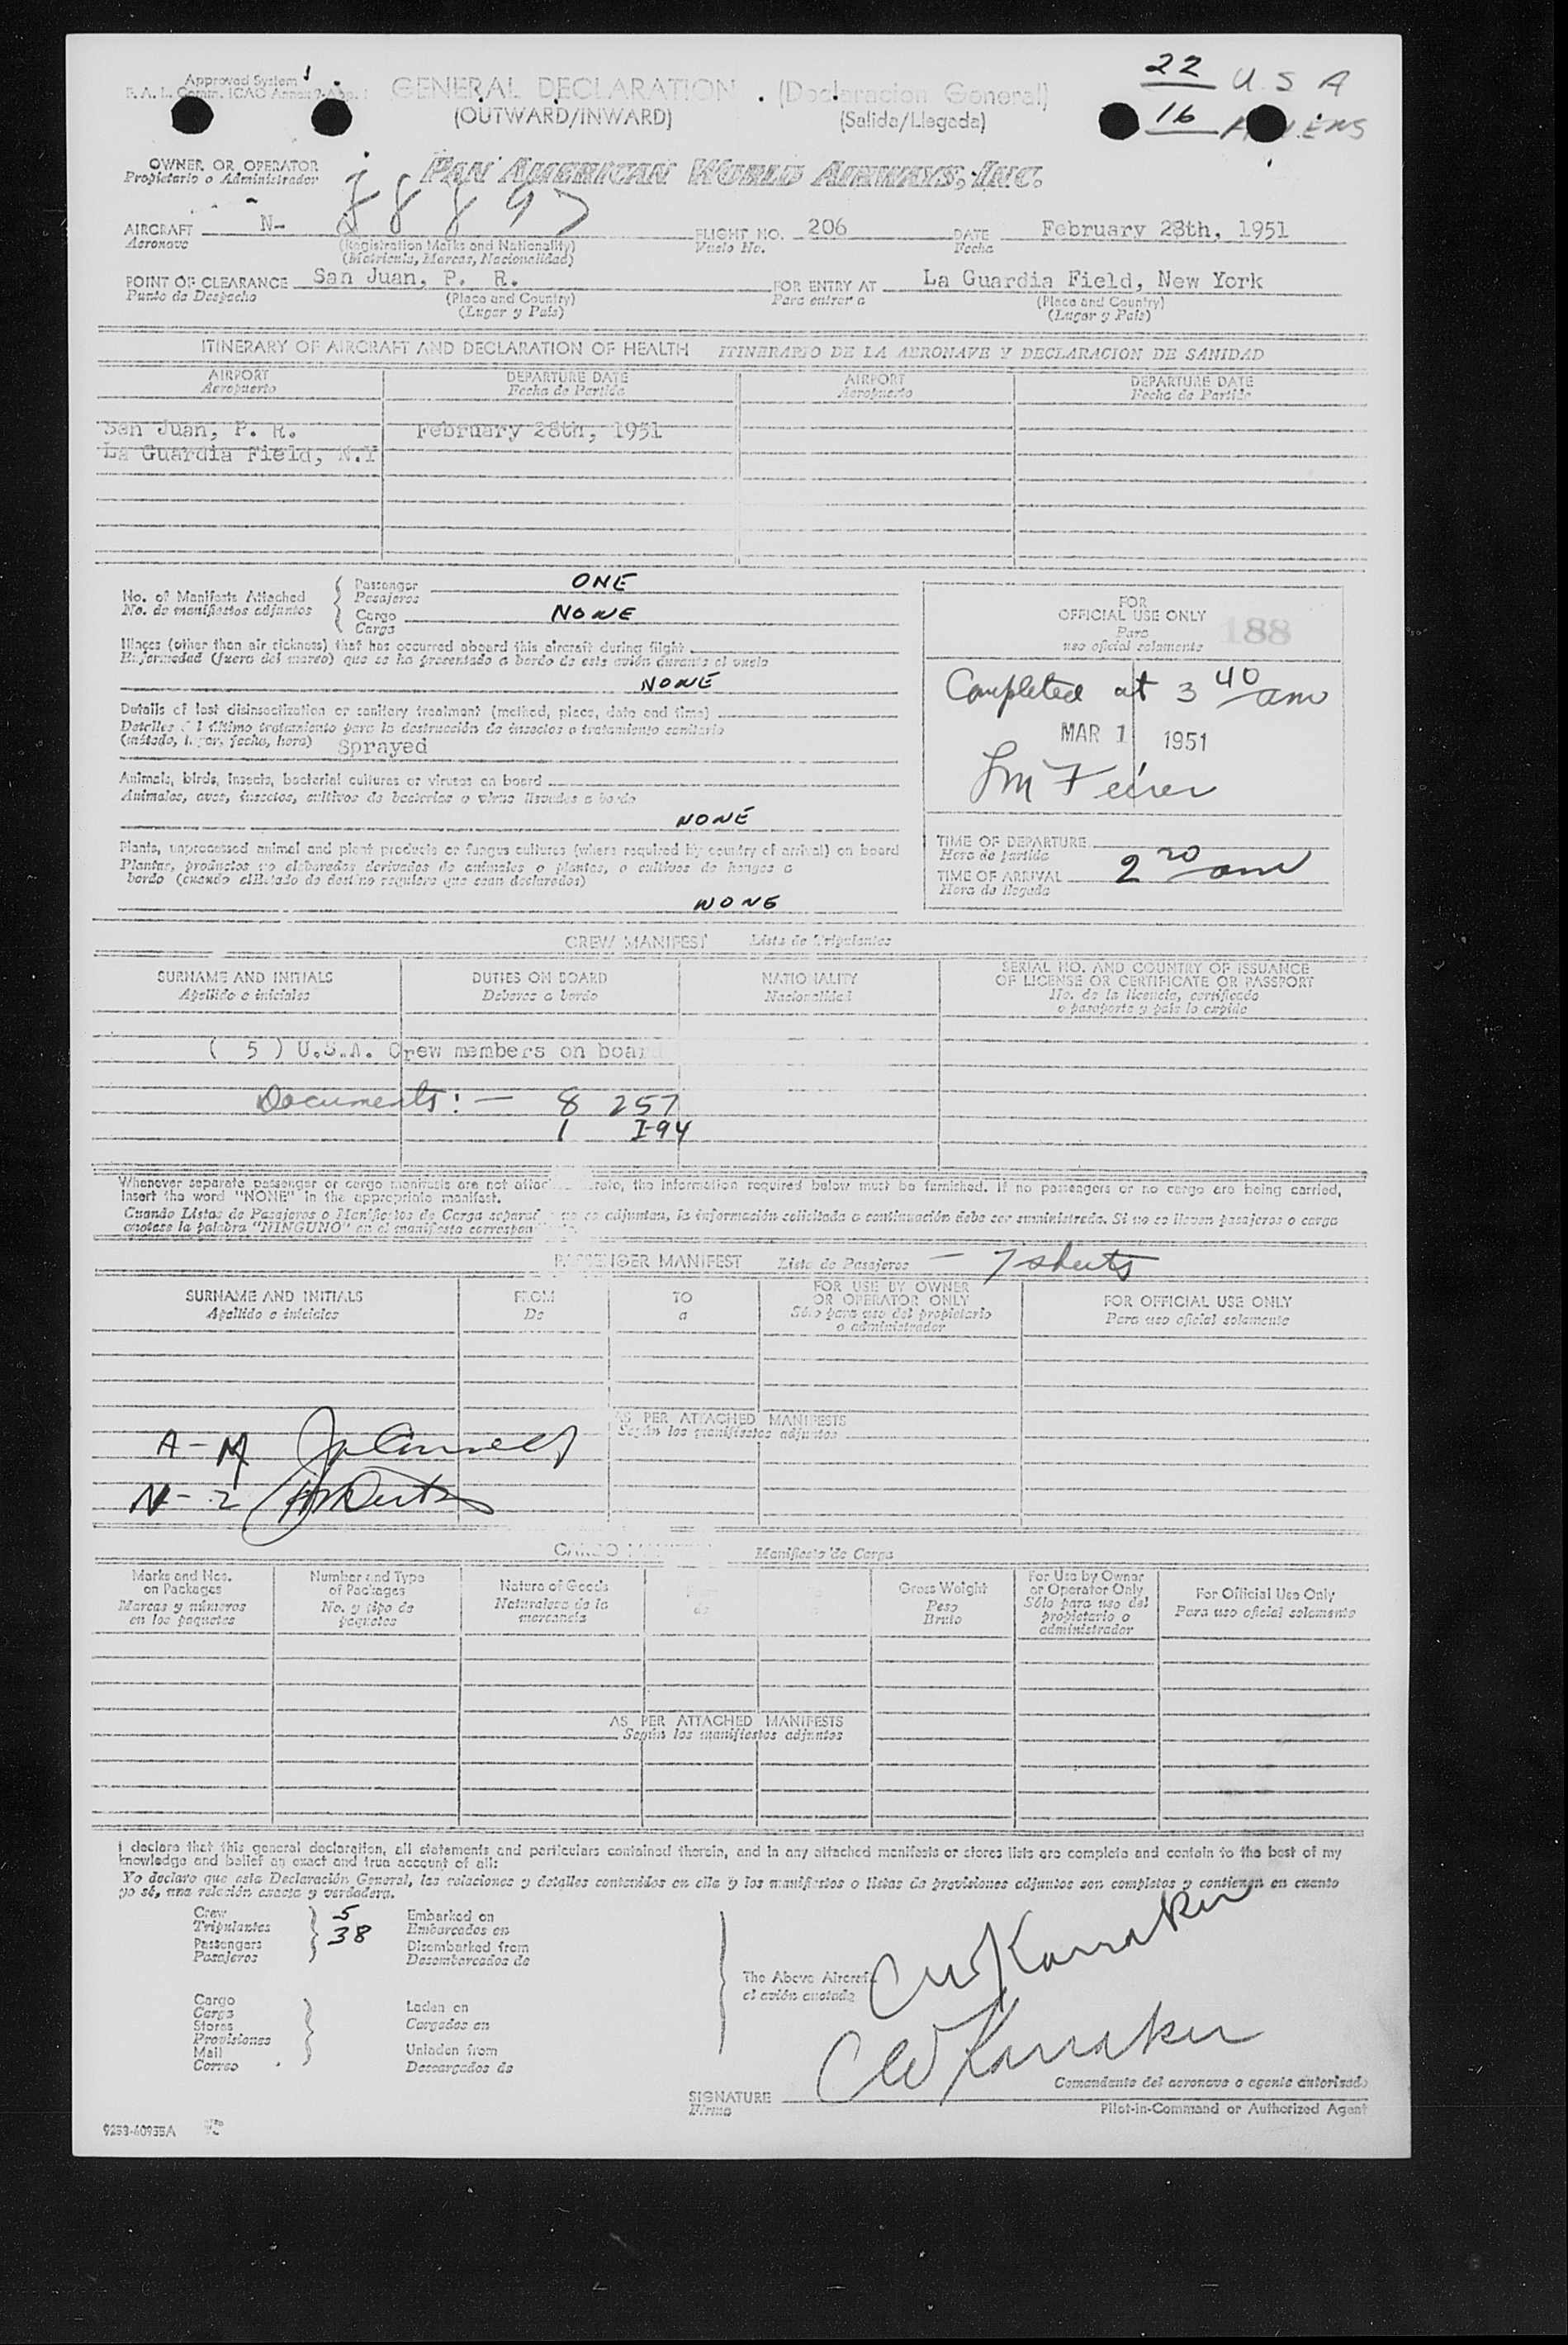 Approved System
GENERAL DECLARATION (Declaracion General)
(OUTWARD/INWARD) (Salida/Llegada)
22 U S A
16
OWNER OR OPERATOR PAN AMERICAN WORLD AIRWAYS, INC.
Propietario o Administrador
AIRCRAFT N- 88897 FLIGHT NO. 206 DATE February 28th, 1951
Aeronave (Registration Marks and Nationality) Vuelo No. Fecha
(Matricula, Marcas, Nacionalidad)
POINT OF CLEARANCE San Juan, P. R. FOR ENTRY AT La Guardia Field, New York
Punto de Despacho (Place and Country) Para entrar a (Place and Country)
(Lugar y País) (Lugar y País)
ITINERARY OF AIRCRAFT AND DECLARATION OF HEALTH ITINERARIO DE LA AERONAVE Y DECLARACION DE SANIDAD
AIRPORT DEPARTURE DATE AIRPORT DEPARTURE DATE
Aeropuerto Fecha de Partida Aeropuerto Fecha de Partida
San Juan, P. R. February 28th, 1951
La Guardia Field, N.Y
No. of Manifests Attached Passenger ONE
No. de manifiestos adjuntos Pasajeros
Cargo NONE
Carga
Illness (other than air sickness) that has occurred aboard this aircraft during flight
Enfermedad (fuera del mareo) que se ha presentado a bordo de este avión durante el vuelo
NONE
Details of last disinsectization or sanitary treatment (method, place, date and time)
Detalles último tratamiento para la destrucción de insectos o tratamiento sanitario
(método, fecha, hora) Sprayed
Animals, birds, insects, bacterial cultures or viruses on board
Animales, aves, insectos, cultivos de bacterias o virus llevados a bordo
NONE
Plants, unprocessed animal and plant products or fungus cultures (where required by country of arrival) on board
Plantas, productos no elaborados derivados de animales o plantas, o cultivos de hongos a
bordo (cuando el Estado de destino requiere que sean declarados)
NONE
FOR
OFFICIAL USE ONLY
Para
uso oficial solamente
188
Completed at 3 40 am
MAR 1 1951
TIME OF DEPARTURE
Hora de partida
TIME OF ARRIVAL 2 20 am
Hora de llegada
CREW MANIFEST Lista de Tripulantes
SURNAME AND INITIALS DUTIES ON BOARD NATIONALITY SERIAL NO. AND COUNTRY OF ISSUANCE
OF LICENSE OR CERTIFICATE OR PASSPORT
Apellido e iniciales Deberes a bordo Nacionalidad No. de la licencia, certificado
o pasaporte y país lo expide
( 5 ) U.S.A. Crew members on board
Documents: — 8 257
1 I-94
Whenever separate passenger or cargo manifests are not attac reto, the information required below must be furnished. If no passengers or no cargo are being carried,
insert the word "NONE" in the appropriate manifest.
Cuando Listas de Pasajeros o Manifiestos de Carga separa no se adjuntan, la información solicitada a continuación debe ser suministrada. Si no se llevan pasajeros o carga
anotese la palabra "NINGUNO" en el manifiesto correspon
PASSENGER MANIFEST Lista de Pasajeros — 7 sheets
SURNAME AND INITIALS FROM TO FOR USE BY OWNER
OR OPERATOR ONLY FOR OFFICIAL USE ONLY
Apellido e iniciales De a Sólo para uso del propietario
o administrador Para uso oficial solamente
AS PER ATTACHED MANIFESTS
Según los manifiestos adjuntos
A - M
N - Z
CARGO Manifiesto de Carga
Marks and Nos.
on Packages
Marcas y números
en los paquetes
Number and Type
of Packages
No. y tipo de
paquetes
Nature of Goods
Naturaleza de la
mercancía
Gross Weight
Peso
Bruto
For Use by Owner
or Operator Only
Sólo para uso del
propietario o
administrador
For Official Use Only
Para uso oficial solamente
AS PER ATTACHED MANIFESTS
Según los manifiestos adjuntos
I declare that this general declaration, all statements and particulars contained therein, and in any attached manifests or stores lists are complete and contain to the best of my
knowledge and belief an exact and true account of all:
Yo declaro que esta Declaración General, las relaciones y detalles contenidos en ella y los manifiestos o listas de provisiones adjuntos son completos y contienen en cuanto
yo sé, una relación exacta y verdadera.
Crew 5 Embarked on
Tripulantes Embarcados en
Passengers 38 Disembarked from
Pasajeros Desembarcados de
The Above Aircraft
el avión anotado
CW Karraker
Cargo
Carga
Stores Laden on
Provisiones Cargados en
Mail Unladen from
Correo Descargados de
CW Karraker
Comandante del aeronave o agente autorizado
SIGNATURE
Firma
Pilot-in-Command or Authorized Agent
9253-60935A